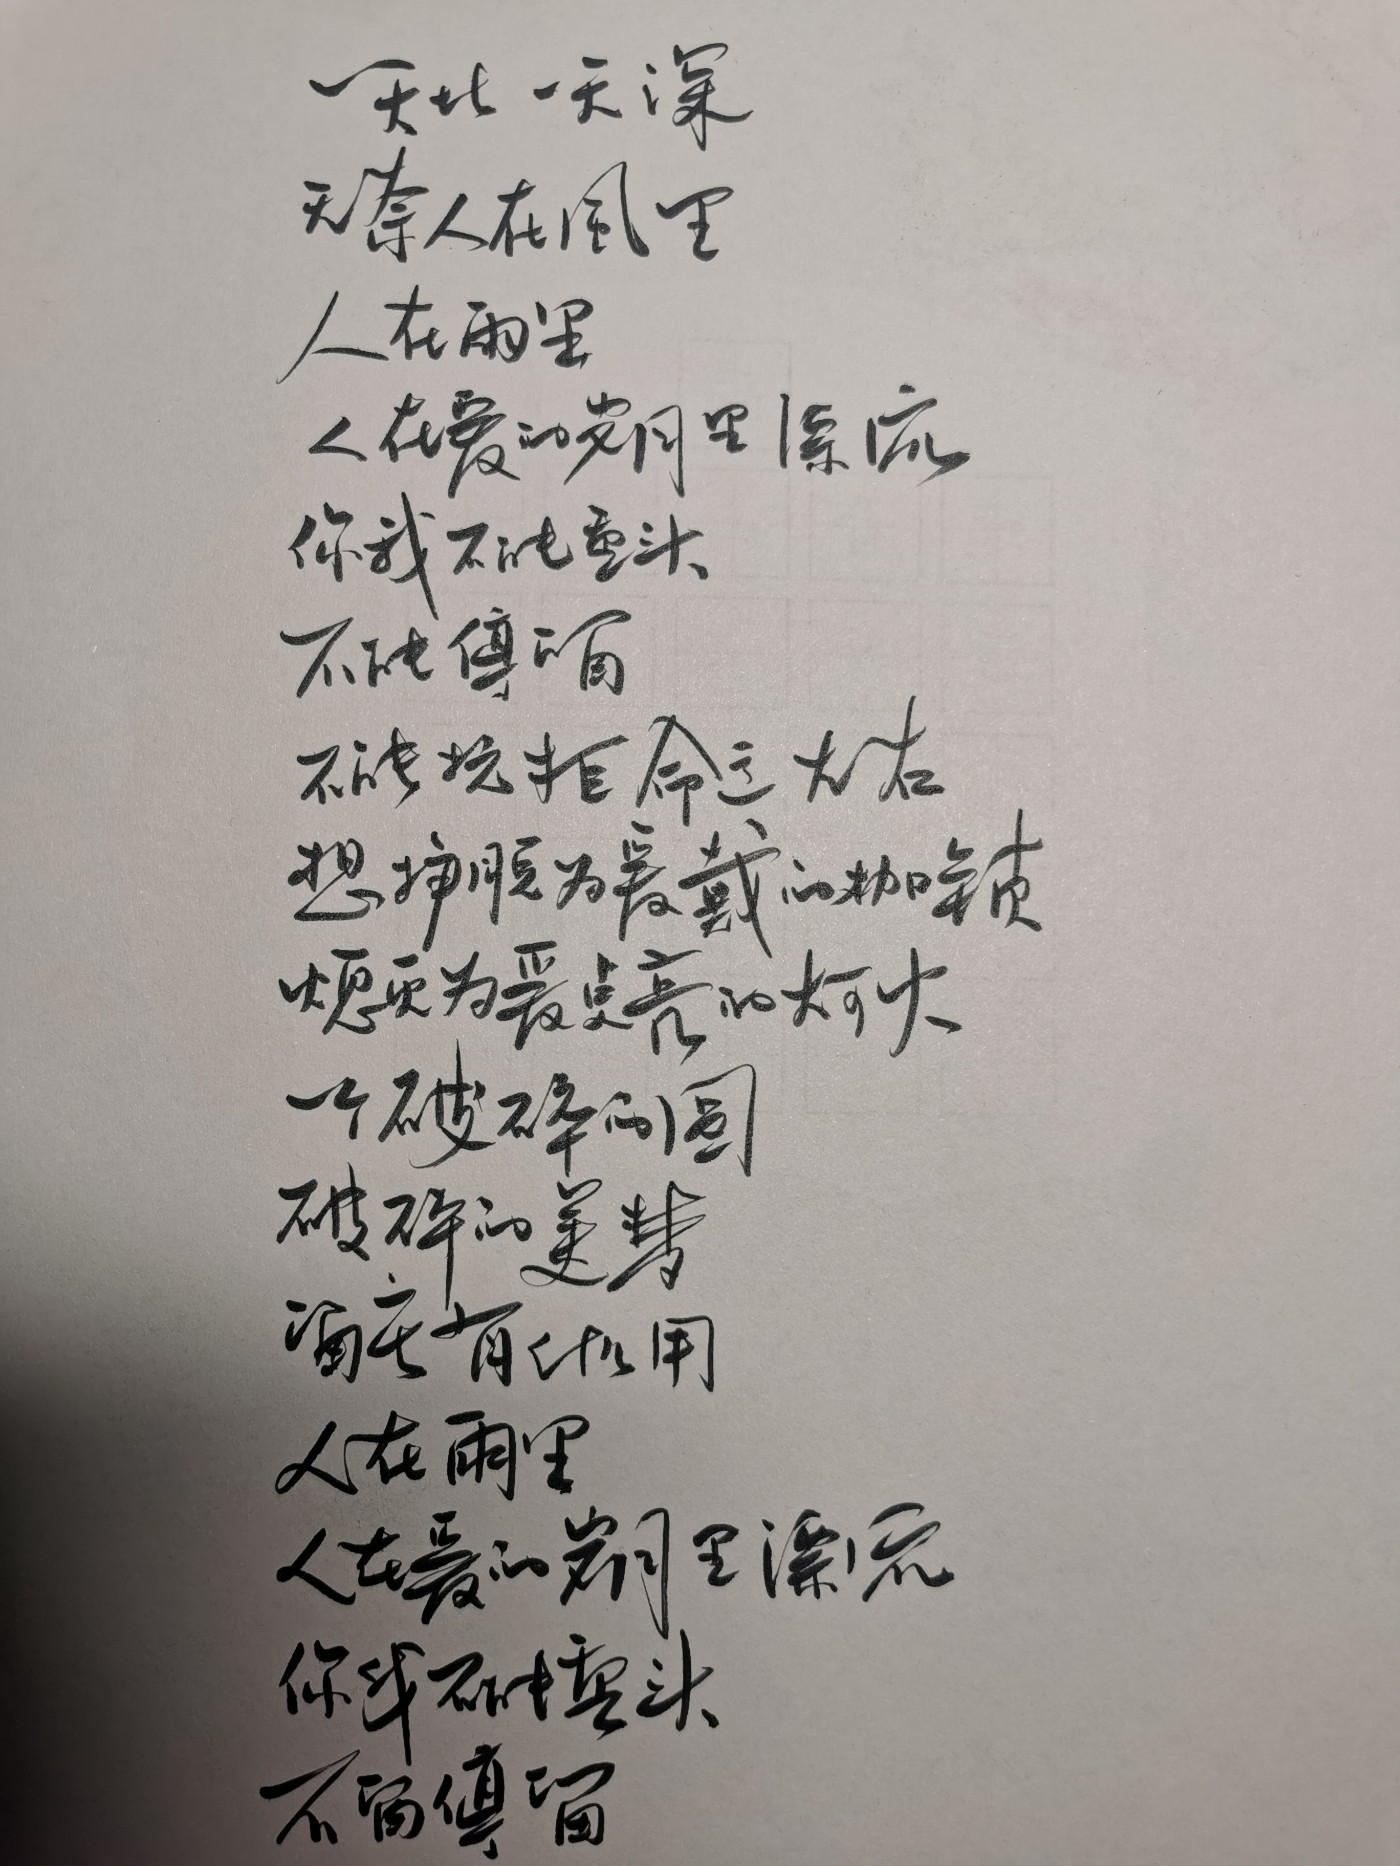 一天比一天深
无奈人在风里
人在雨里
人在爱的岁月里漂流
你我不能重头
不能停留
不能抗拒命运左右
想挣脱为爱戴的枷锁
熄灭为爱点亮的灯火
一个破碎的圆
破碎的美梦
留在有什么用
人在雨里
人在爱的岁月里漂流
你我不能重头
不留停留